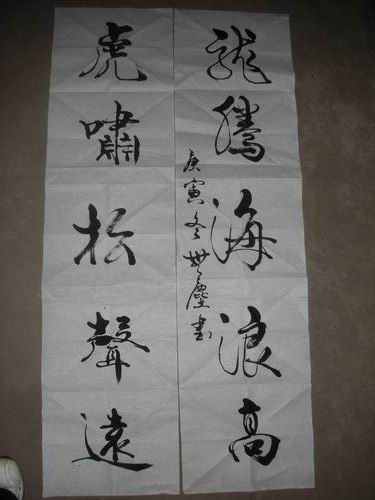 龍騰海浪高
庚寅冬無塵書
虎嘯松聲遠